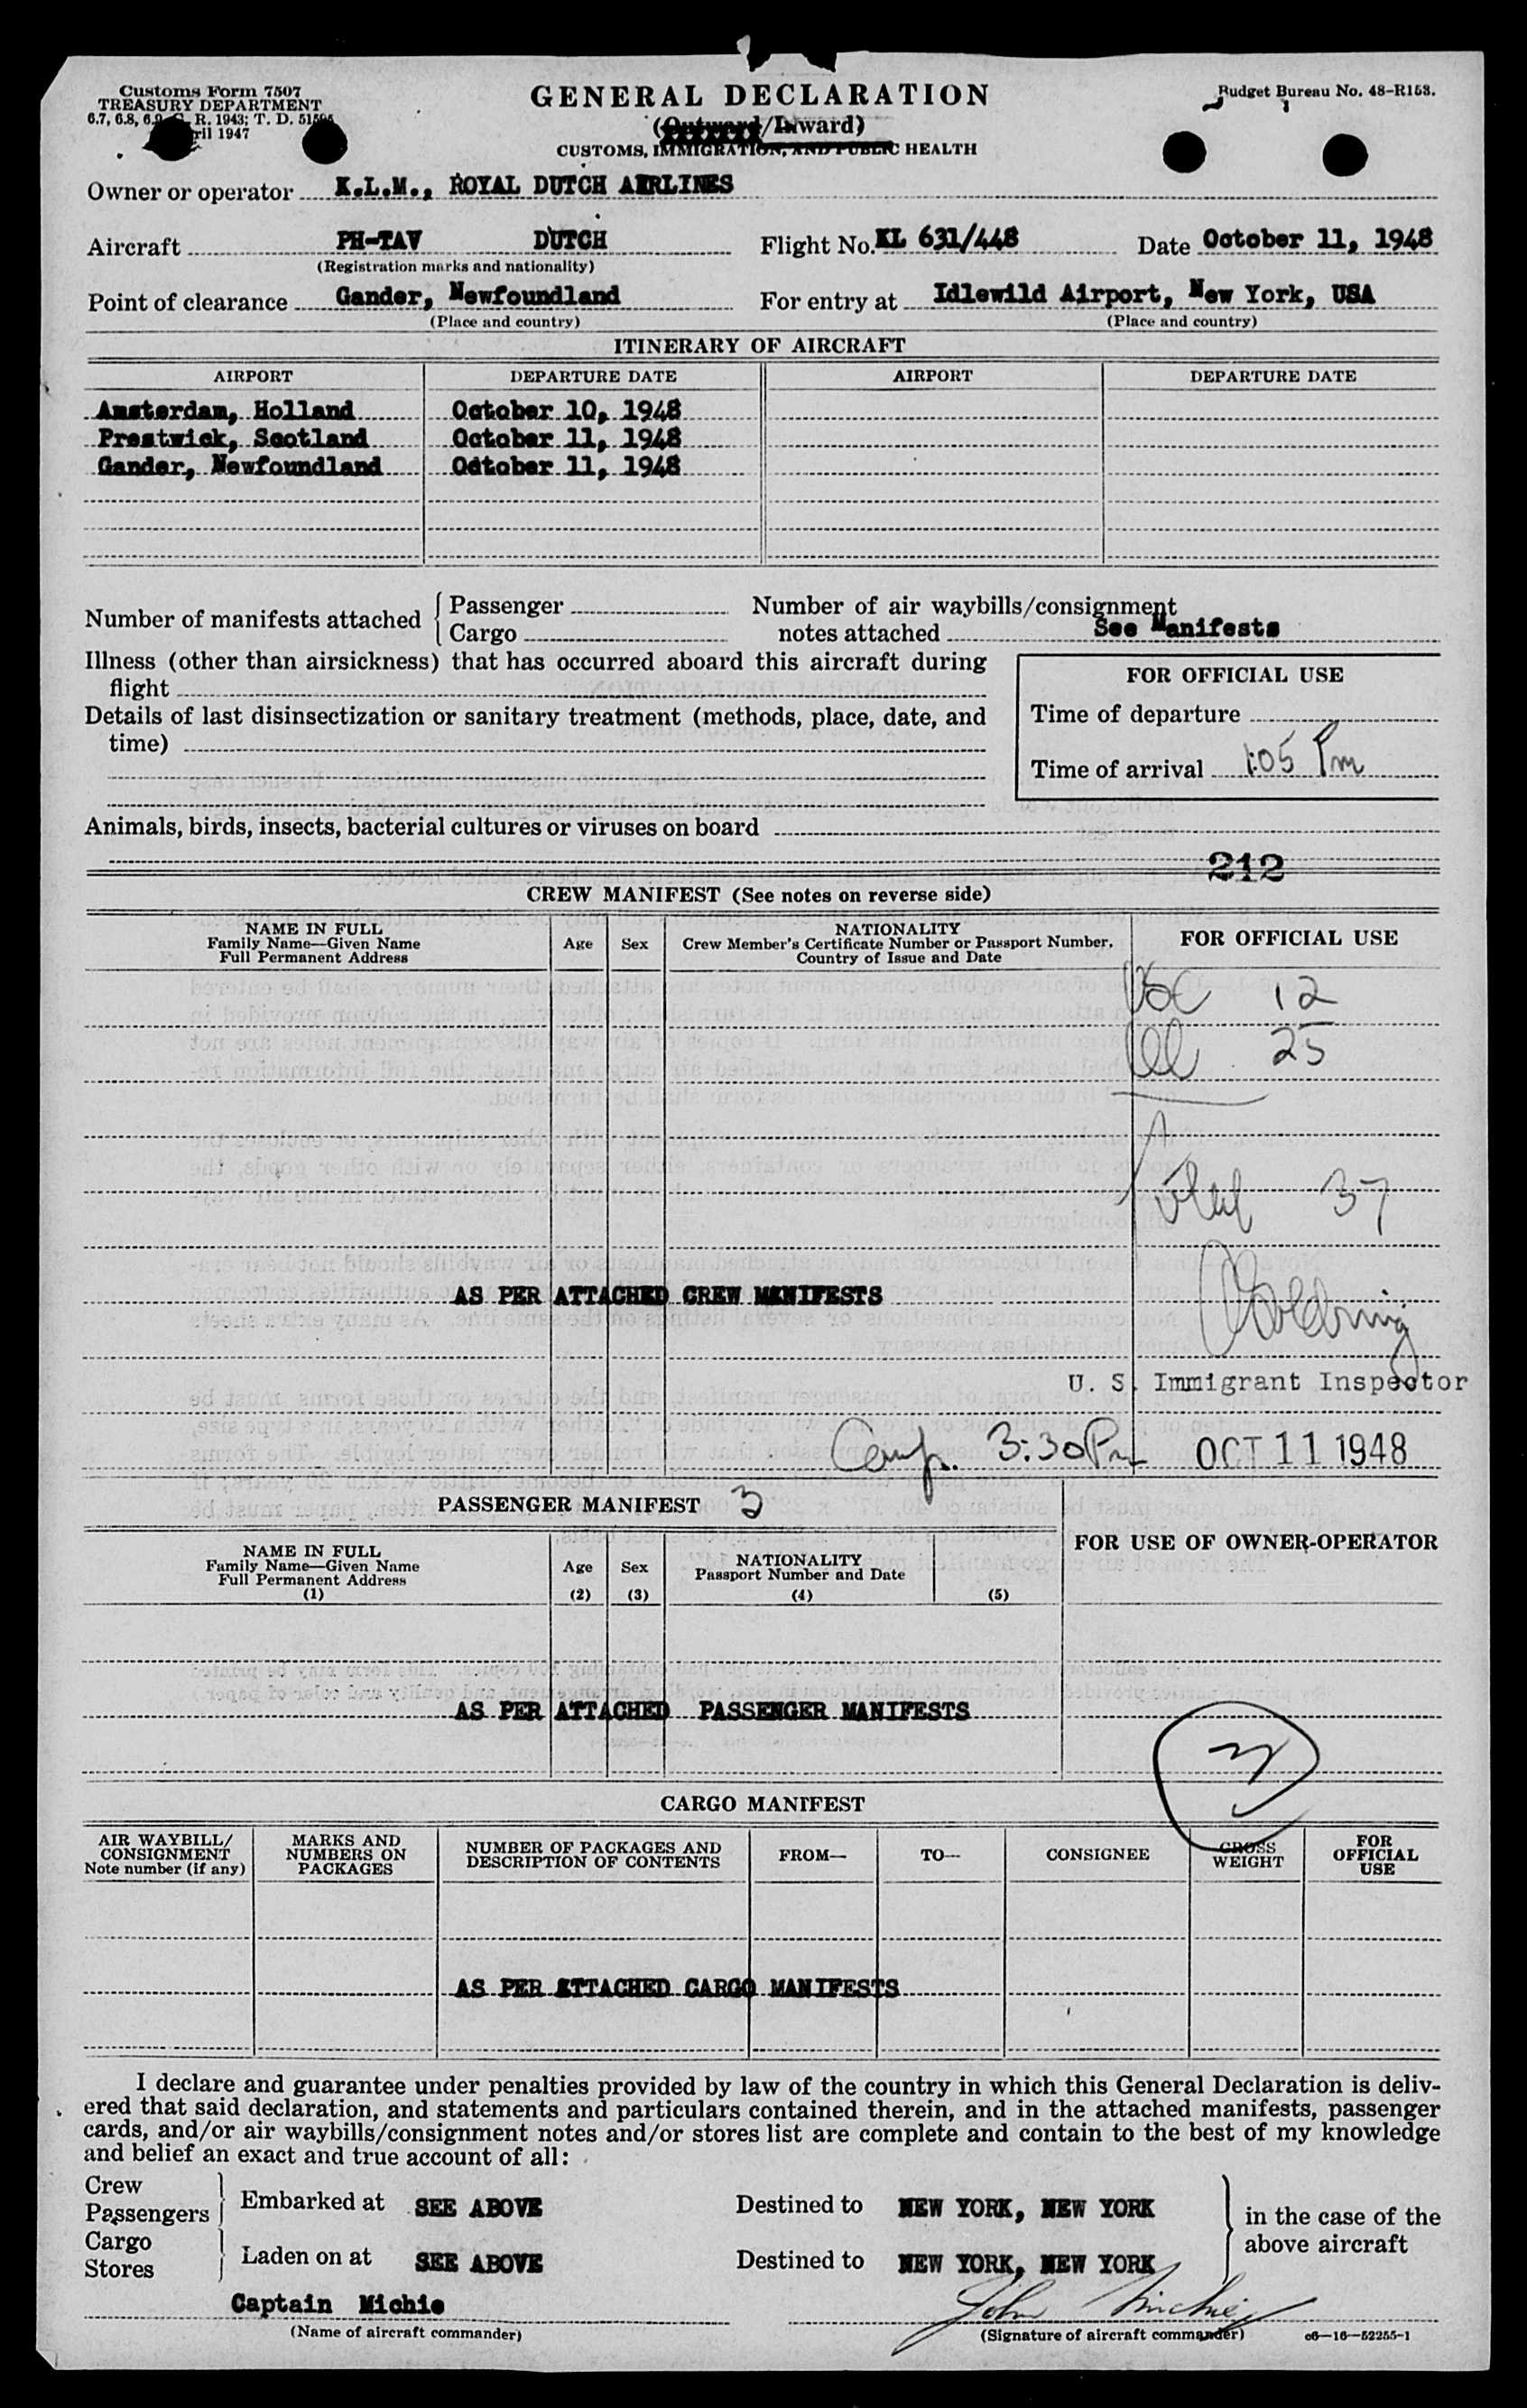 Customs Form 7507
TREASURY DEPARTMENT
6.7, 6.8, 6.9, C. R. 1943; T. D. 51595
April 1947
GENERAL DECLARATION
(Outward/Inward)
CUSTOMS, IMMIGRATION, AND PUBLIC HEALTH
Budget Bureau No. 48-R153.
Owner or operator K.L.M., ROYAL DUTCH AIRLINES
Aircraft PH-TAV DUTCH Flight No. KL 631/448 Date October 11, 1948
(Registration marks and nationality)
Point of clearance Gander, Newfoundland For entry at Idlewild Airport, New York, USA
(Place and country) (Place and country)
ITINERARY OF AIRCRAFT
AIRPORT DEPARTURE DATE AIRPORT DEPARTURE DATE
Amsterdam, Holland October 10, 1948
Prestwick, Scotland October 11, 1948
Gander, Newfoundland Odtober 11, 1948
Number of manifests attached { Passenger
Cargo
Number of air waybills/consignment
notes attached See Manifests
Illness (other than airsickness) that has occurred aboard this aircraft during
flight
Details of last disinsectization or sanitary treatment (methods, place, date, and
time)
FOR OFFICIAL USE
Time of departure
Time of arrival 1:05 Pm
Animals, birds, insects, bacterial cultures or viruses on board
212
CREW MANIFEST (See notes on reverse side)
NAME IN FULL
Family Name—Given Name
Full Permanent Address
Age
Sex
NATIONALITY
Crew Member's Certificate Number or Passport Number,
Country of Issue and Date
FOR OFFICIAL USE
12
25
37
AS PER ATTACHED CREW MANIFESTS
U. S. Immigrant Inspector
Comp. 3:30 Pm OCT 11 1948
PASSENGER MANIFEST 3
NAME IN FULL
Family Name—Given Name
Full Permanent Address
(1)
Age
(2)
Sex
(3)
NATIONALITY
Passport Number and Date
(4)
(5)
FOR USE OF OWNER-OPERATOR
AS PER ATTACHED PASSENGER MANIFESTS
CARGO MANIFEST
AIR WAYBILL/
CONSIGNMENT
Note number (if any)
MARKS AND
NUMBERS ON
PACKAGES
NUMBER OF PACKAGES AND
DESCRIPTION OF CONTENTS
FROM—
TO—
CONSIGNEE
GROSS
WEIGHT
FOR
OFFICIAL
USE
AS PER ATTACHED CARGO MANIFESTS
I declare and guarantee under penalties provided by law of the country in which this General Declaration is deliv-
ered that said declaration, and statements and particulars contained therein, and in the attached manifests, passenger
cards, and/or air waybills/consignment notes and/or stores list are complete and contain to the best of my knowledge
and belief an exact and true account of all:
Crew
Passengers
Embarked at SEE ABOVE Destined to NEW YORK, NEW YORK
Cargo
Stores
Laden on at SEE ABOVE Destined to NEW YORK, NEW YORK
in the case of the
above aircraft
Captain Michie John Michie
(Name of aircraft commander) (Signature of aircraft commander) c6—16—52255-1